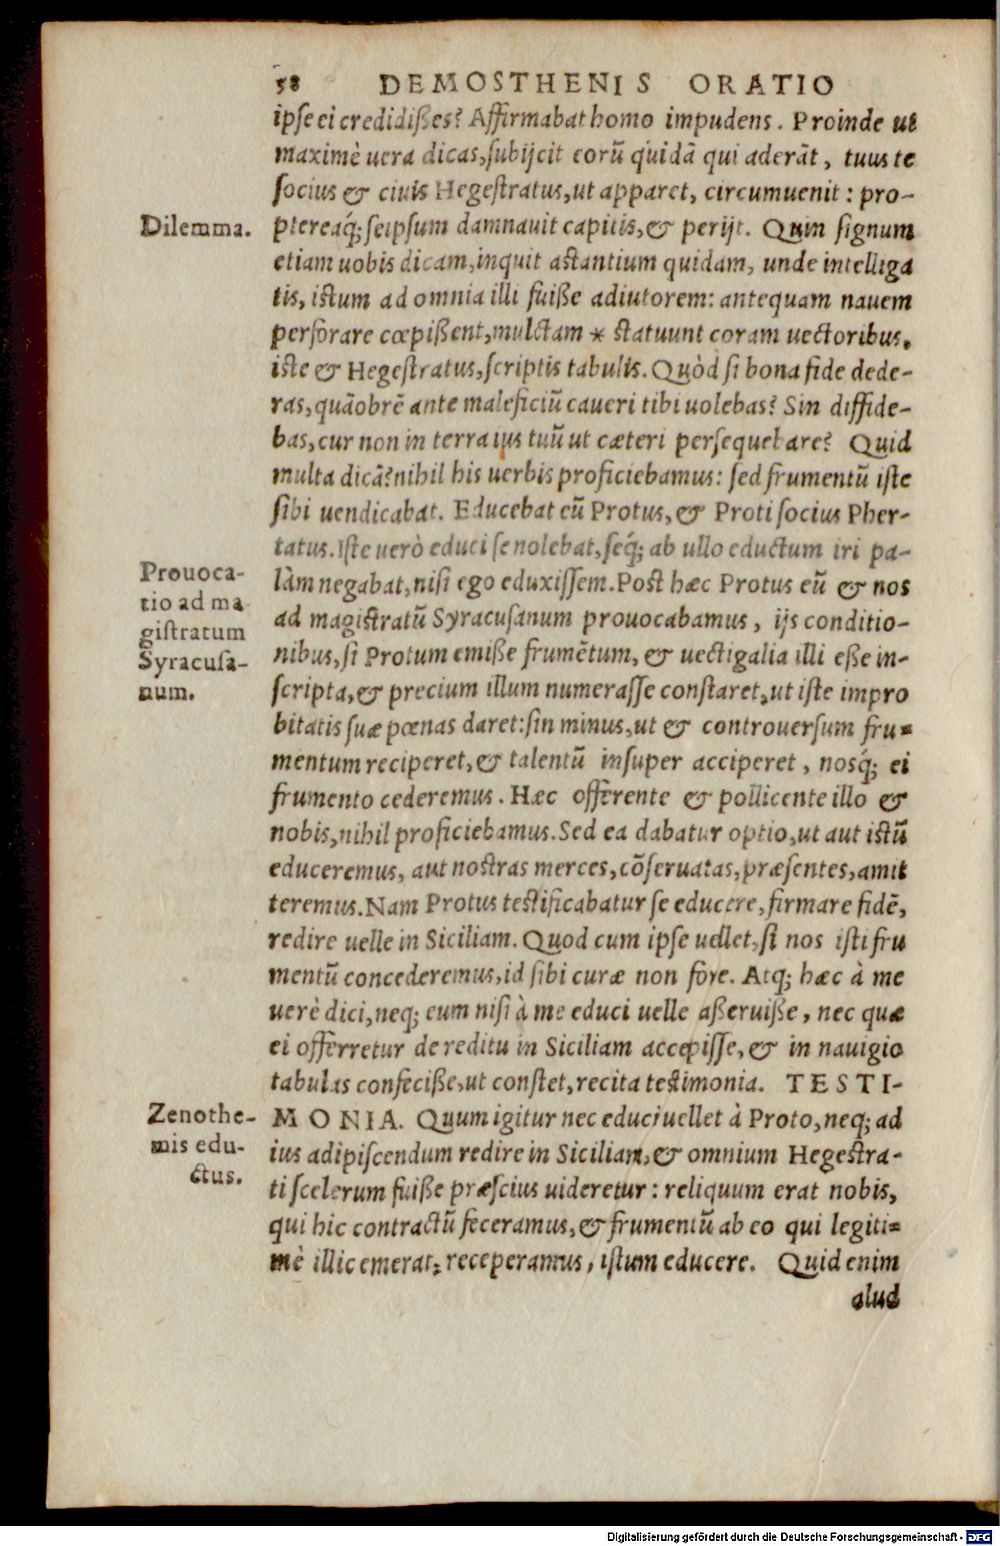 58 DEMOSTHENIS ORATIO
ipse ei credidißes? Affirmabat homo impudens. Proinde ut
maximè uera dicas, subijcit eorũ quidã qui aderãt, tuus te
socius & ciuis Hegestratus, ut apparet, circumuenit: pro-
Dilemma.
ptereaq́; seipsum damnauit capitis, & perijt. Quin signum
etiam uobis dicam, inquit astantium quidam, unde intelliga
tis, istum ad omnia illi fuiße adiutorem: antequam nauem
perforare cœpißent, mulctam * statuunt coram uectoribus,
iste & Hegestratus, scriptis tabulis. Quòd si bona fide dede-
ras, quãobrẽ ante maleficiũ caueri tibi uolebas? Sin diffide-
bas, cur non in terra ius tuũ ut cæteri persequebare? Quid
multa dicã? nihil his uerbis proficiebamus: sed frumentũ iste
sibi uendicabat. Educebat eũ Protus, & Proti socius Pher-
tatus. Iste uerò educi se nolebat, seq́; ab ullo eductum iri pa-
Prouoca-
tio ad ma
gistratum
Syracusa-
num.
làm negabat, nisi ego eduxissem. Post hæc Protus eũ & nos
ad magistratũ Syracusanum prouocabamus, ijs conditio-
nibus, si Protum emiße frumẽtum, & uectigalia illi eße in-
scripta, & precium illum numerasse constaret, ut iste impro
bitatis suæ pœnas daret: sin minus, ut & controuersum fru-
mentum reciperet, & talentũ insuper acciperet, nosq́; ei
frumento cederemus. Hæc offerente & pollicente illo &
nobis, nihil proficiebamus. Sed ea dabatur optio, ut aut istũ
educeremus, aut nostras merces, cõseruatas, præsentes, amit
teremus. Nam Protus testificabatur se educere, firmare fidẽ,
redire uelle in Siciliam. Quod cum ipse uellet, si nos isti fru
mentũ concederemus, id sibi curæ non fore. Atq; hæc à me
uerè dici, neq; eum nisi à me educi uelle aßeruiße, nec quæ
ei offerretur de reditu in Siciliam accepisse, & in nauigio
tabulas confeciße, ut constet, recita testimonia. TESTI-
Zenothe-
mis edu-
ctus.
MONIA. Quum igitur nec educi uellet à Proto, neq; ad
ius adipiscendum redire in Siciliam, & omnium Hegestra-
ti scelerum fuiße præscius uideretur: reliquum erat nobis,
qui hic contractũ feceramus, & frumentũ ab eo qui legiti-
mè illic emerat, receperamus, istum educere. Quid enim
alud
Digitalisierung gefördert durch die Deutsche Forschungsgemeinschaft - DFG